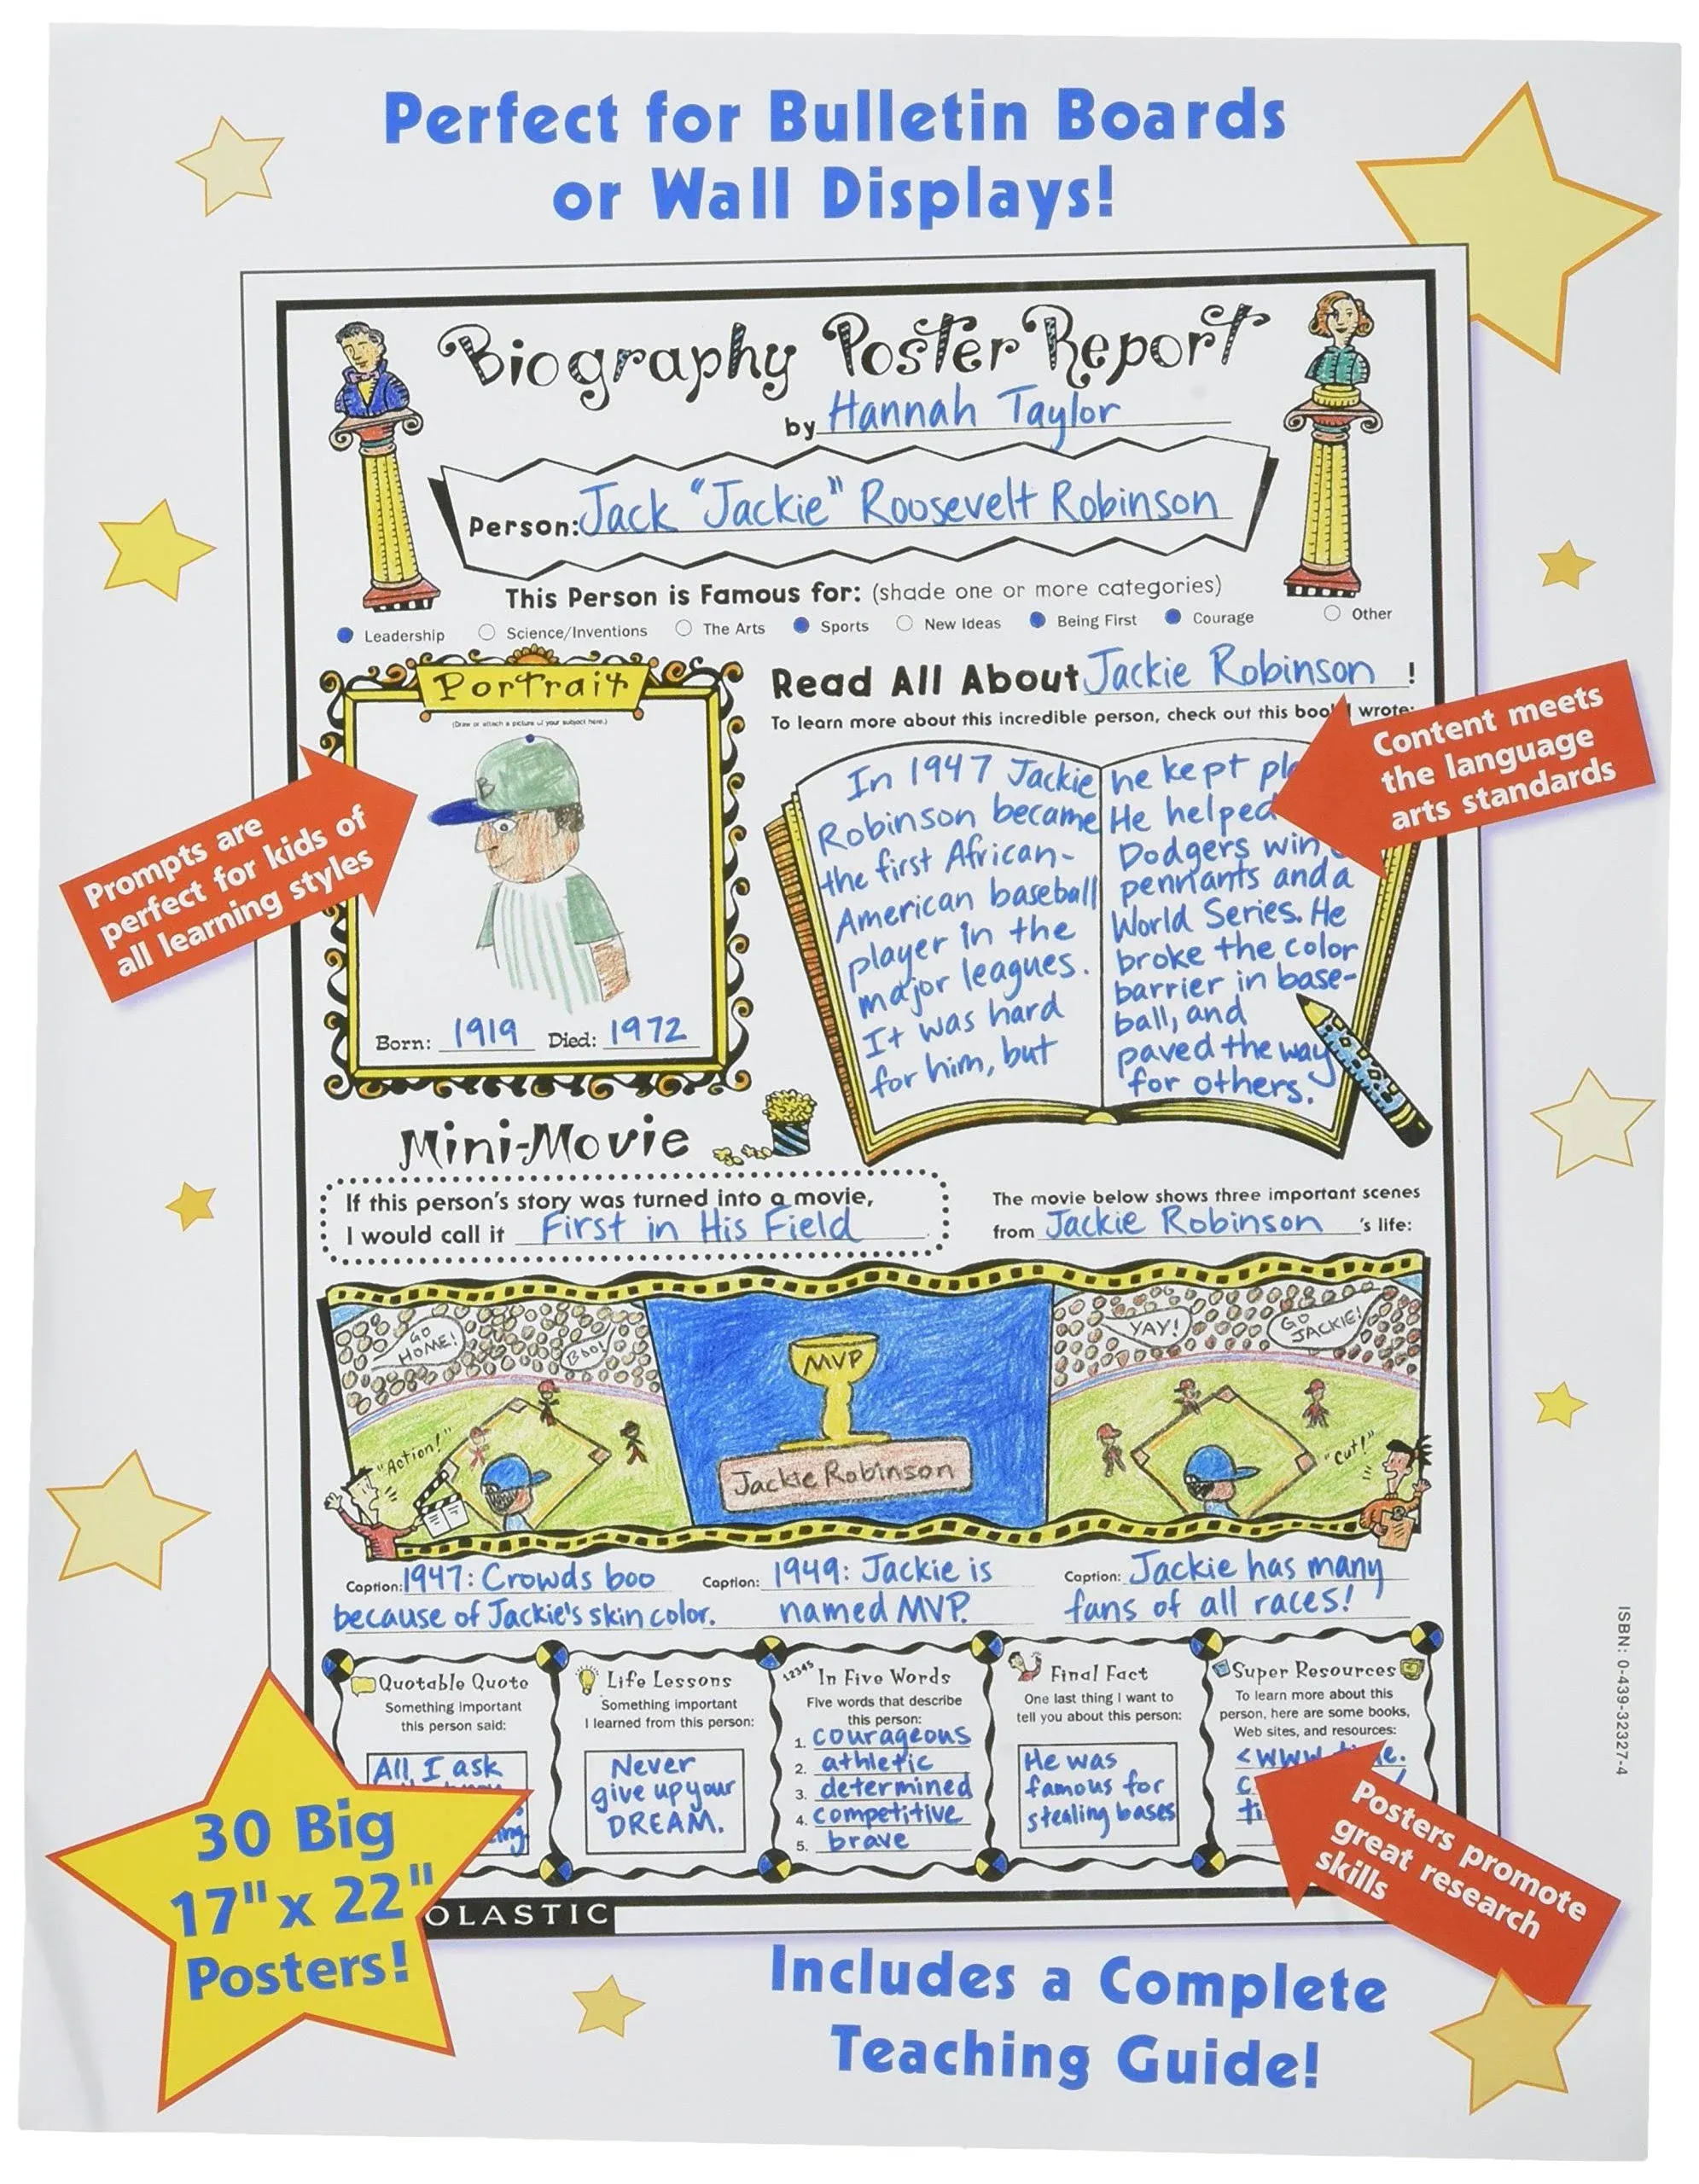 Perfect for Bulletin Boards
or Wall Displays!
Biography Poster Report
by Hannah Taylor
Person: Jack "Jackie" Roosevelt Robinson
This Person is Famous for: (shade one or more categories)
Leadership Science/Inventions The Arts Sports New Ideas Being First Courage Other
Portrait
(Draw or attach a picture of your subject here.)
B
Born: 1919 Died: 1972
Prompts are
perfect for kids of
all learning styles
Read All About Jackie Robinson !
To learn more about this incredible person, check out this book I wrote:
Content meets
the language
arts standards
In 1947 Jackie
Robinson became
the first African-
American baseball
player in the
major leagues.
It was hard
for him, but
he kept
He helped
Dodgers win
pennants and a
World Series. He
broke the color
barrier in base-
ball, and
paved the way
for others.
Mini-Movie
If this person's story was turned into a movie,
I would call it First in His Field
The movie below shows three important scenes
from Jackie Robinson 's life:
GO
HOME!
BOO!
"Action!"
MVP
Jackie Robinson
YAY!
GO
JACKIE!
"Cut!"
Caption: 1947: Crowds boo
because of Jackie's skin color.
Caption: 1949: Jackie is
named MVP.
Caption: Jackie has many
fans of all races!
Quotable Quote
Something important
this person said:
All I ask
Life Lessons
Something important
I learned from this person:
Never
give up your
DREAM.
12345
In Five Words
Five words that describe
this person:
1. courageous
2. athletic
3. determined
4. competitive
5. brave
Final Fact
One last thing I want to
tell you about this person:
He was
famous for
stealing bases
Super Resources
To learn more about this
person, here are some books,
Web sites, and resources:
Posters promote
great research
skills
30 Big
17" x 22"
Posters!
OLASTIC
Includes a Complete
Teaching Guide!
ISBN: 0-439-32327-4